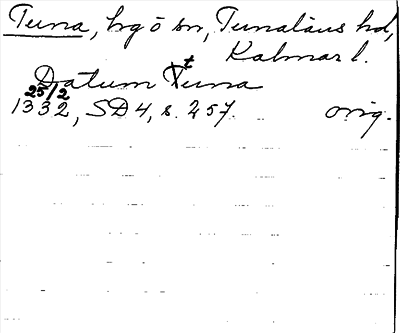 Tuna, hg ō sn, Tunaläns hd,
Kalmar l.
Datum Tuna
t
25/2
1332, SD 4, s. 257. orig.